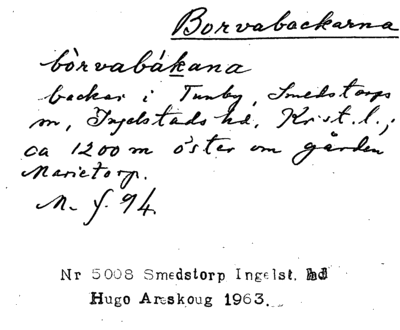 Borvabackarna
bòrvabákana
backar i Tunby, Smedstorps
sn, Ingelstads hd, Krist. l.;
ca 1200 m öster om gården
Marietorp.
M. f. 94.
Nr 5008 Smedstorp Ingelst. hd
Hugo Areskoug 1963.